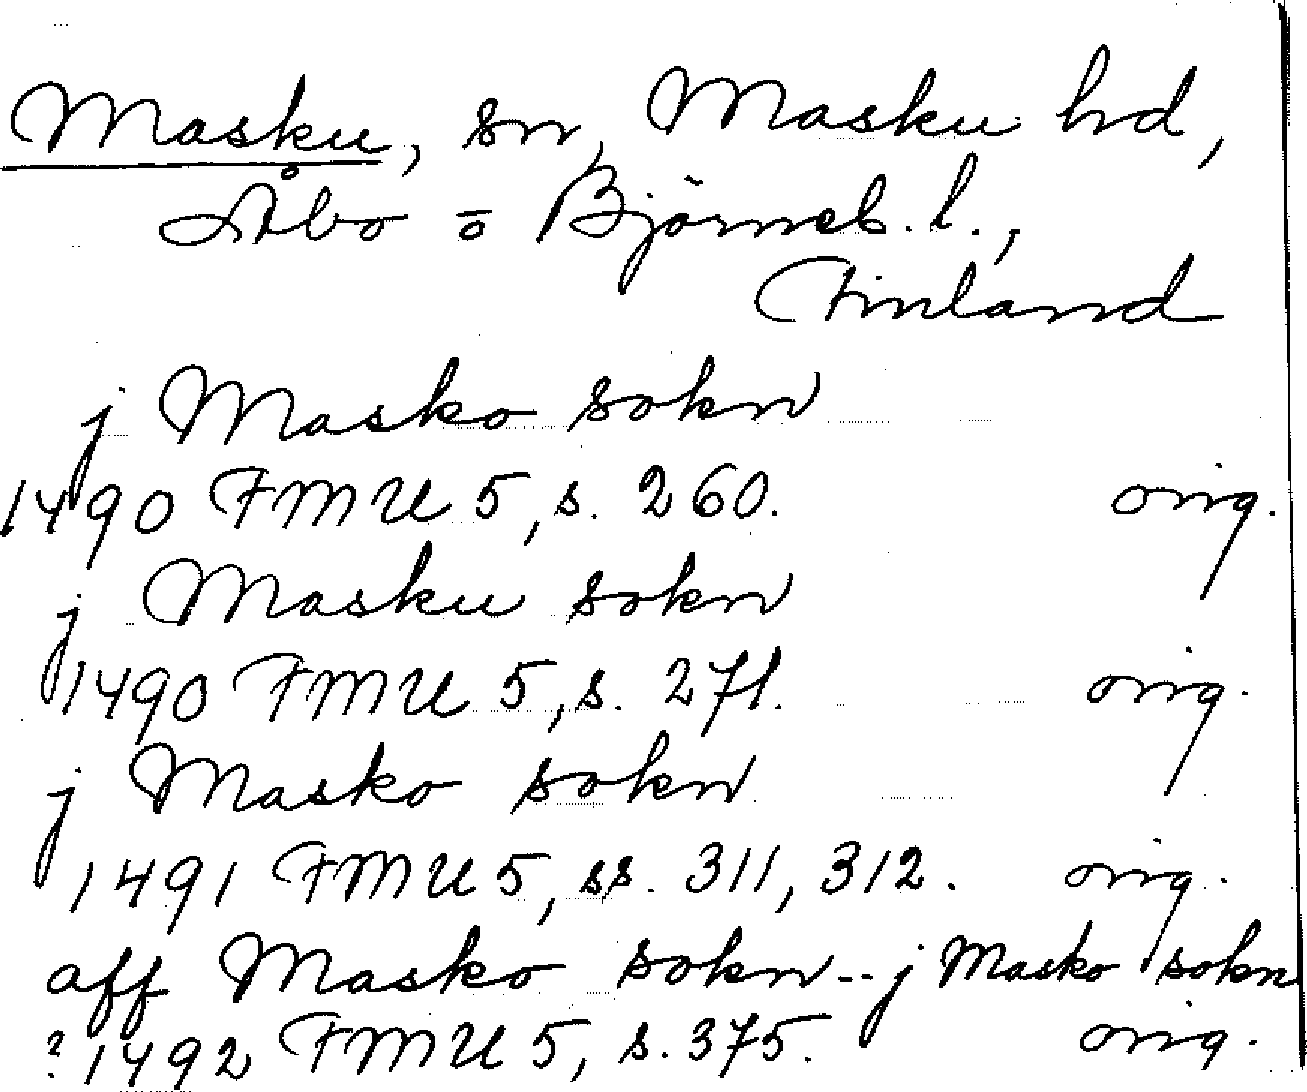 Masku, sn, Masku hd,
Åbo o Björneb. l.,
Finland
j Masko sokn
1490 FMU 5, s. 260. orig.
j Masku sokn
1490 FMU 5, s. 271. orig.
j Masko sokn
1491 FMU 5, ss. 311, 312. orig.
aff Masko sokn -- j Masko sokn
? 1492 FMU 5, s. 375. orig.